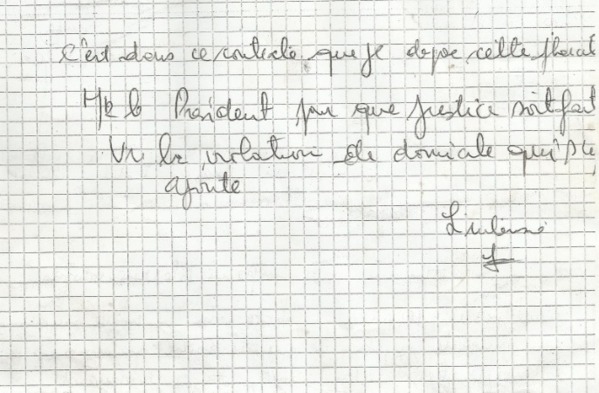 C'est dans ce contexte que je depose cette plainte
Mr le President pour que justice soit fait
Vu la violation de domicile qui s'
ajoute
L'interessé